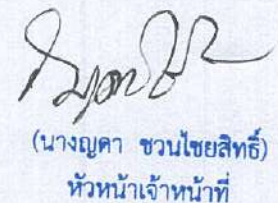 (นางญดา ชวนไชยสิทธิ์)
หัวหน้าเจ้าหน้าที่